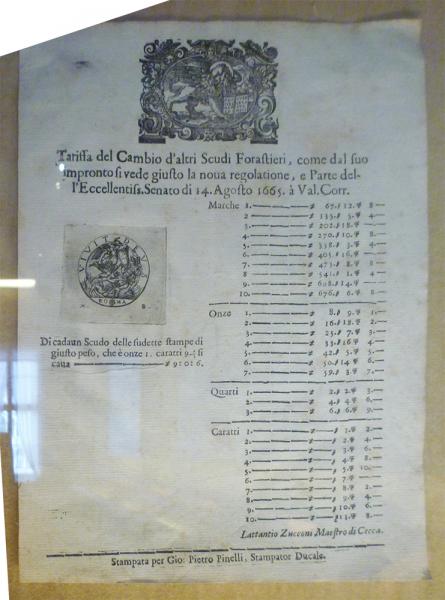 Tariffa del Cambio d'altri Scudi Forastieri, come dal suo
impronto si vede giusto la noua regolatione, e Parte del-
l'Eccellentiss. Senato di 14. Agosto 1665. à Val. Corr.
Marche 1. 67. 12. 8
2 135. 5. 4
3. 202. 18.
4. 270. 10. 8
5. 338. 3. 4
6. 405. 16.
7. 473. 8. 8
8 541. 1. 4
9. 608. 14.
10. 676. 6. 8
Onze 1. 8. 9. 1
2. 16. 18. 2
3. 25. 7. 3
4. 33. 16. 4
5. 42. 5. 5
6. 50. 14. 6
7. 59. 3. 7
Quarti 1. 2. 2. 3
2. 4. 4. 6
3. 6. 6. 9
Caratti 1. 1. 2
2. 2. 4
3. 3. 6
4. 4. 8
5. 5. 10
6. 7.
7. 8. 2
8. 9. 4
9. 10. 6
10. 11. 8
BOLOGNA
Di cadaun Scudo delle sudette stampe di
giusto peso, che è onze 1. caratti 9. si
caua 9: 0: 6.
Lattantio Zucconi Maestro di Cecca.
Stampata per Gio: Pietro Pinelli, Stampator Ducale.